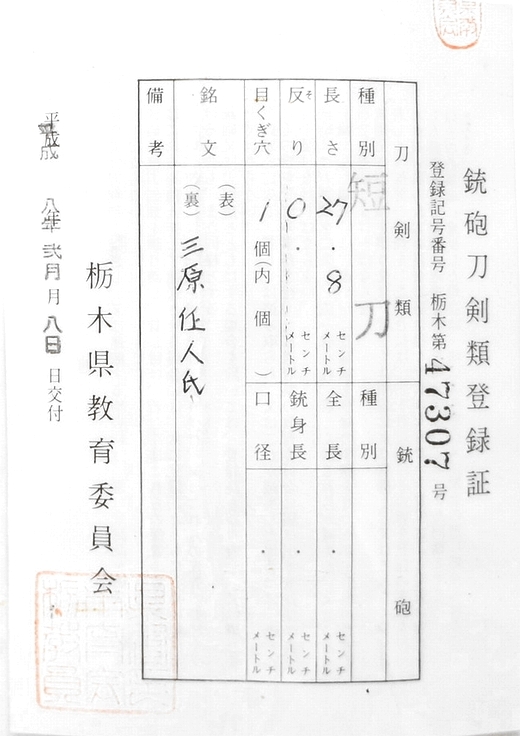 銃砲刀剣類登録証
登録記号番号 栃木第47307号
刀剣類
銃砲
種別 短刀
種別
長さ 27.8 センチメートル
全長 . センチメートル
反り そ 0. センチメートル
銃身長 . センチメートル
目くぎ穴 1個(内 個)
口径 . センチメートル
銘文
(表)
(裏) 三原住人氏
備考
平成 八年 弐月 月 八日 日交付
栃木県教育委員会